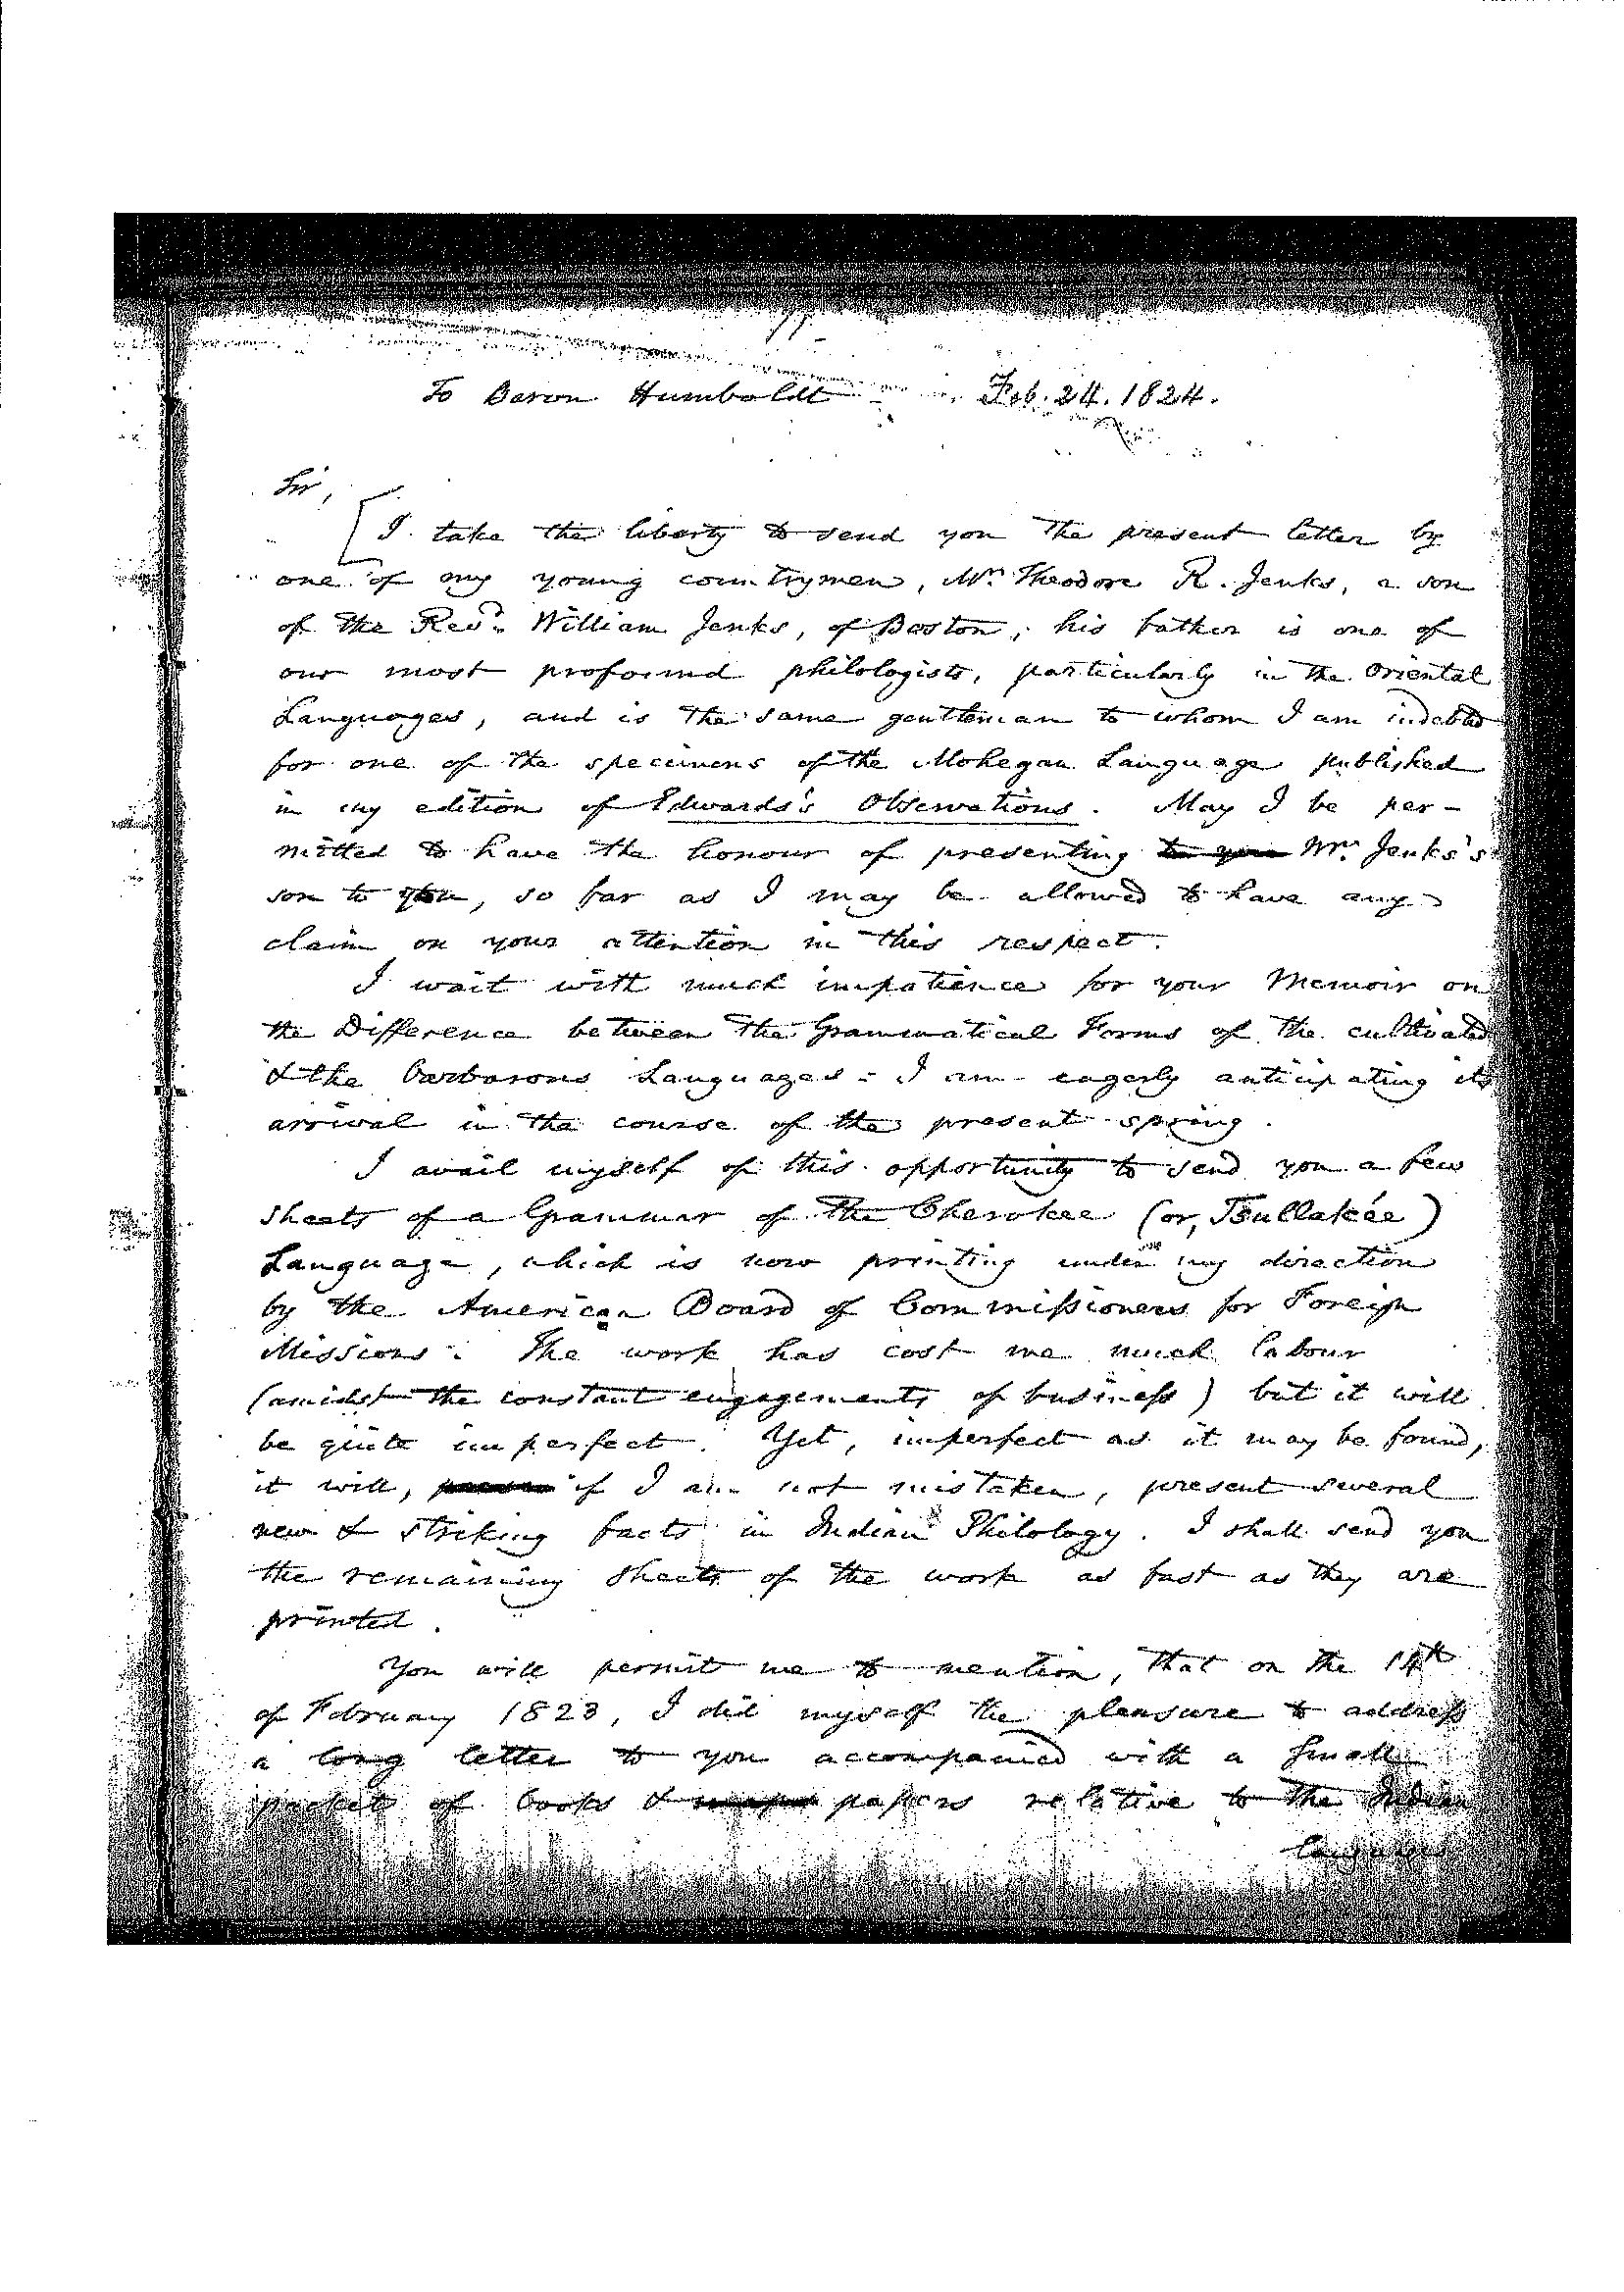 To Baron Humboldt Feb. 24. 1824.
Sir,
I take the liberty to send you the present letter by
one of my young countrymen, Mr. Theodore R. Jenks, a son
of the Revd. William Jenks, of Boston; his father is one of
our most profound philologists, particularly in the Oriental
Languages, and is the same gentleman to whom I am indebted
for one of the specimens of the Mohegan Language published
in my edition of Edwards's Observations. May I be per-
mitted to have the honour of presenting to you Mr. Jenks's
son to you, so far as I may be allowed to have any
claim on your attention in this respect.
I wait with much impatience for your Memoir on
the Difference between the Grammatical Forms of the cultivated
& the barbarous Languages - I am eagerly anticipating its
arrival in the course of the present spring.
I avail myself of this opportunity to send you a few
sheets of a Grammar of the Cherokee (or, Tsullakée)
Language, which is now printing under my direction
by the American Board of Commissioners for Foreign
Missions. The work has cost me much labour
(amidst the constant engagements of business) but it will
be quite imperfect. Yet, imperfect as it may be found,
it will, if I am not mistaken, present several
new & striking facts in Indian Philology. I shall send you
the remaining sheets of the work as fast as they are
printed.
You will permit me to mention, that on the 14th
of February 1823, I did myself the pleasure to address
a long letter to you accompanied with a small
packet of books & papers relative to the Indian
languages